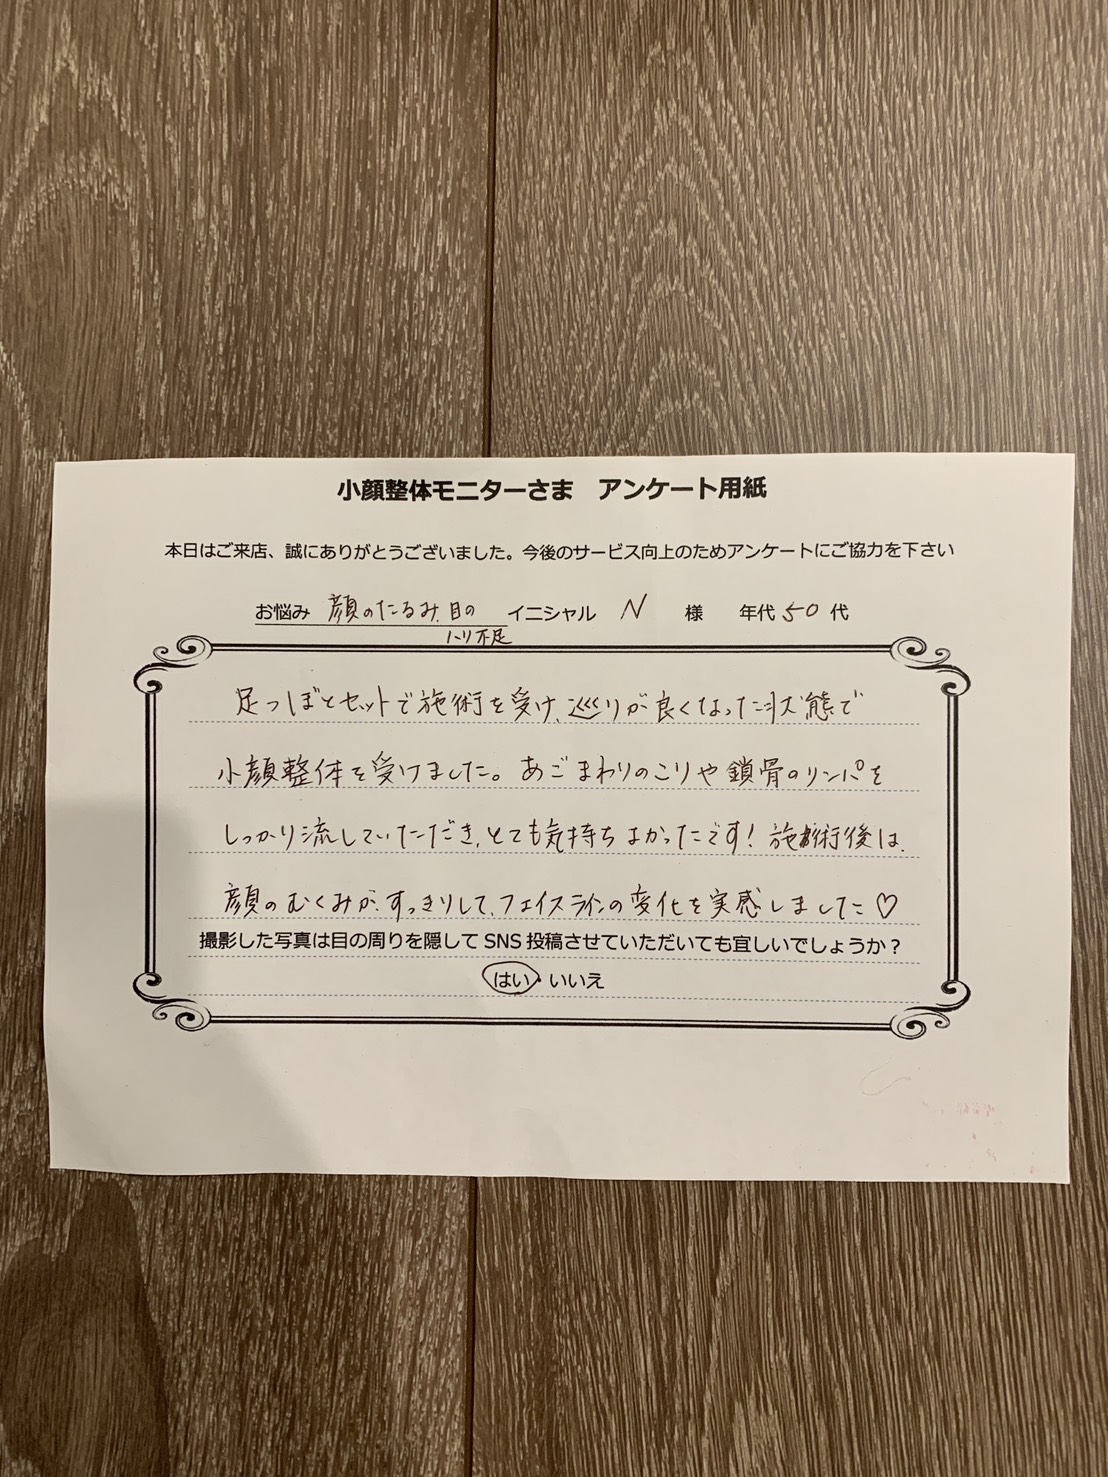 小顔整体モニターさま　アンケート用紙
本日はご来店、誠にありがとうございました。今後のサービス向上のためアンケートにご協力を下さい
お悩み 顔のたるみ、目の イニシャル N 様 年代 50 代
ハリ不足
足つぼとセットで施術を受け、巡りが良くなった状態で
小顔整体を受けました。あごまわりのこりや鎖骨のリンパを
しっかり流していただき、とても気持ちよかったです！施術後は、
顔のむくみが、すっきりして、フェイスラインの変化を実感しました♡
撮影した写真は目の周りを隠して SNS 投稿させていただいても宜しいでしょうか？
はい・いいえ